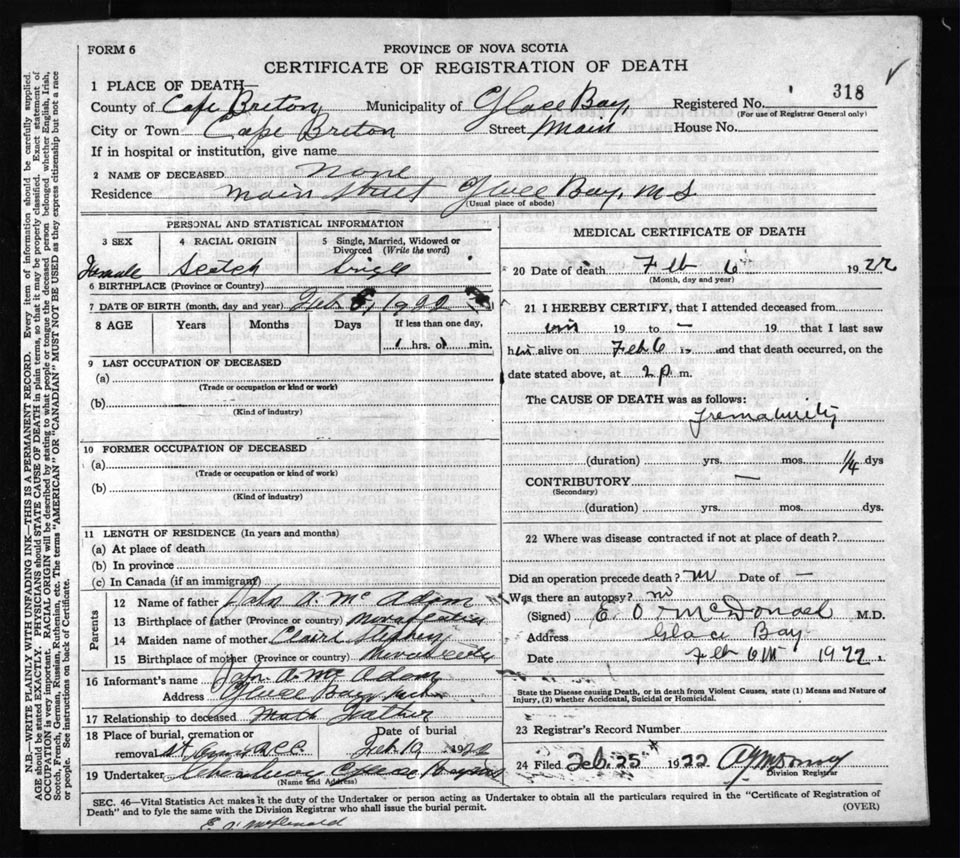 FORM 6
PROVINCE OF NOVA SCOTIA
CERTIFICATE OF REGISTRATION OF DEATH
1 PLACE OF DEATH—
County of Cape Breton Municipality of Glace Bay Registered No. 318
(For use of Registrar General only)
City or Town Cape Breton Street Main House No.
If in hospital or institution, give name
2 NAME OF DECEASED None
Residence Main Street Glace Bay, N S
(Usual place of abode)
PERSONAL AND STATISTICAL INFORMATION
3 SEX 4 RACIAL ORIGIN 5 Single, Married, Widowed or Divorced (Write the word)
Female Scotch Single
6 BIRTHPLACE (Province or Country)
7 DATE OF BIRTH (month, day and year) Feb 6, 1922
8 AGE Years Months Days If less than one day,
1 hrs. or min.
9 LAST OCCUPATION OF DECEASED
(a)
(Trade or occupation or kind or work)
(b)
(Kind of industry)
10 FORMER OCCUPATION OF DECEASED
(a)
(Trade or occupation or kind of work)
(b)
(Kind of industry)
11 LENGTH OF RESIDENCE (In years and months)
(a) At place of death
(b) In province
(c) In Canada (if an immigrant)
Parents
12 Name of father John A. McAdam
13 Birthplace of father (Province or country) Nova Scotia
14 Maiden name of mother Claire
15 Birthplace of mother (Province or country) Nova Scotia
16 Informant's name John A. McAdam
Address Glace Bay
17 Relationship to deceased Father
18 Place of burial, cremation or Date of burial
removal Feb 10 1922
19 Undertaker
(Name and Address)
MEDICAL CERTIFICATE OF DEATH
20 Date of death Feb 6 1922
(Month, day and year)
21 I HEREBY CERTIFY, that I attended deceased from
19 to — 19 that I last saw
h alive on Feb 6 19 and that death occurred, on the
date stated above, at 2 p m.
The CAUSE OF DEATH was as follows:
Prematurity
(duration) yrs. mos. 1/4 dys
CONTRIBUTORY —
(Secondary)
(duration) yrs. mos. dys.
22 Where was disease contracted if not at place of death?
Did an operation precede death? no Date of —
Was there an autopsy? no
(Signed) E. O. McDonald M.D.
Address Glace Bay
Date Feb 6th 1922
State the Disease causing Death, or in death from Violent Causes, state (1) Means and Nature of
Injury, (2) whether Accidental, Suicidal or Homicidal.
23 Registrar's Record Number
24 Filed Feb. 25 1922
Division Registrar
SEC. 46—Vital Statistics Act makes it the duty of the Undertaker or person acting as Undertaker to obtain all the particulars required in the "Certificate of Registration of
Death" and to fyle the same with the Division Registrar who shall issue the burial permit. (OVER)
E. O. McDonald
N.B.—WRITE PLAINLY WITH UNFADING INK—THIS IS A PERMANENT RECORD. Every item of information should be carefully supplied.
AGE should be stated EXACTLY. PHYSICIANS should STATE CAUSE OF DEATH in plain terms, so that it may be properly classified. Exact statement of
OCCUPATION is very important. RACIAL ORIGIN will be described by stating to what people or tongue the deceased person belonged whether English, Irish,
Scotch, French, German, Russian, Ruthenian, etc. The terms "AMERICAN" OR "CANADIAN" MUST NOT BE USED as they express citizenship but not a race
or people. See instructions on back of Certificate.